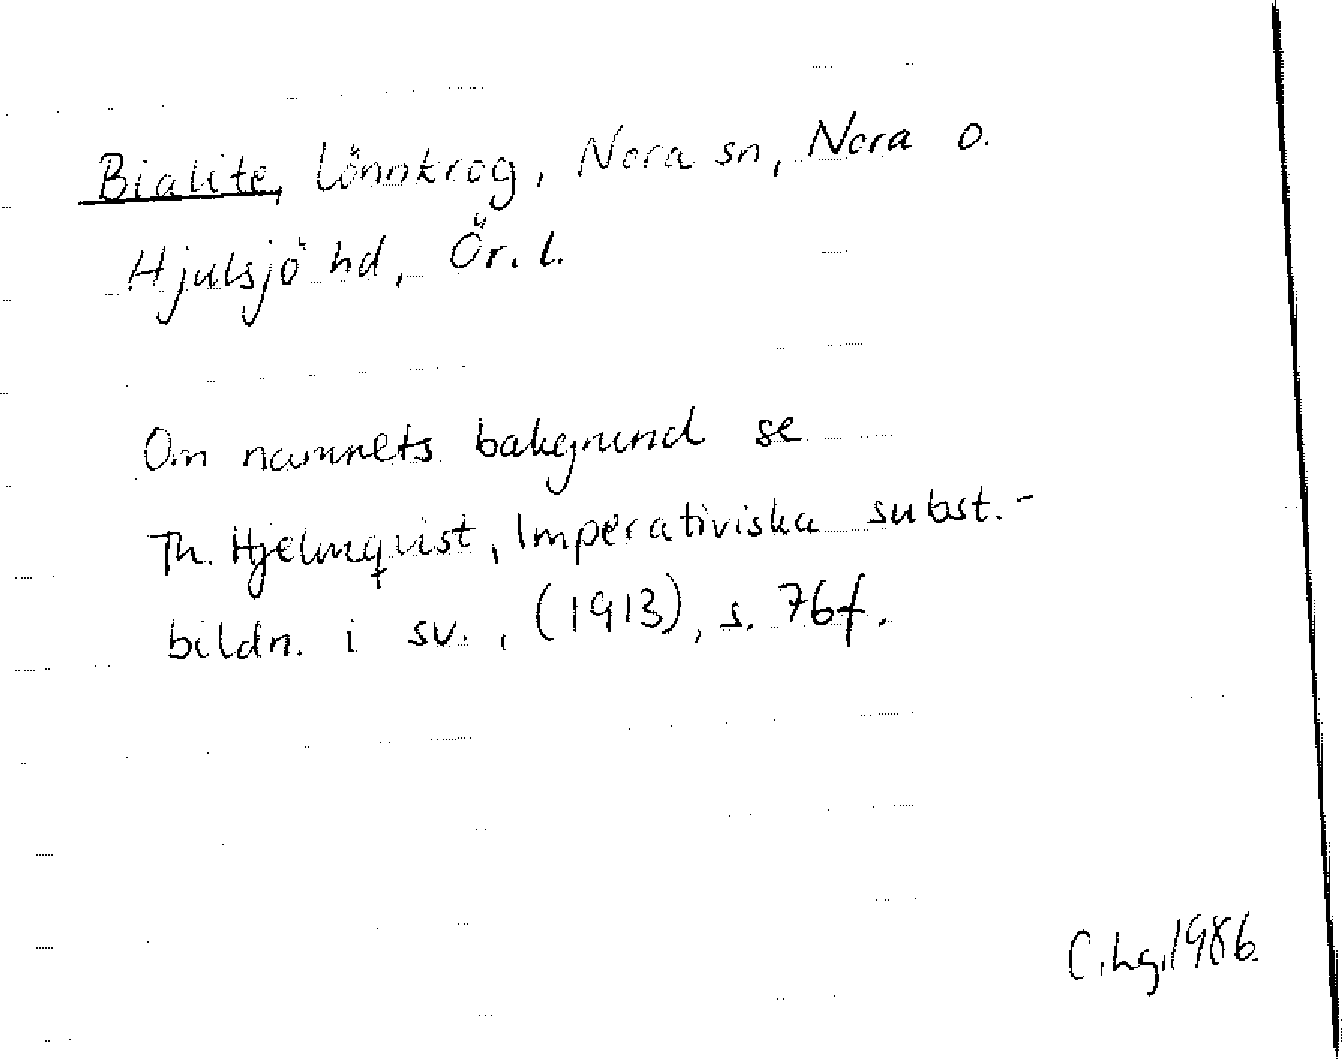 Bialite, lönnkrog, Nora sn, Nora o.
Hjulsjö hd, Ör. l.
Om namnets bakgrund se
Th. Hjelmqvist, Imperativiska subst.-
bildn. i sv., (1913), s. 76f.
C.Lg.1986